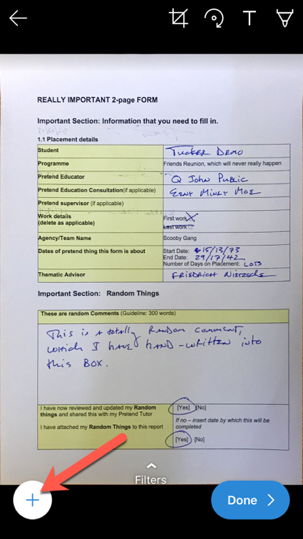 REALLY IMPORTANT 2-page FORM
Important Section: Information that you need to fill in.
1.1 Placement details
Student Tucker Demo
Programme Friends Reunion, which will never really happen
Pretend Educator Q John Public
Pretend Education Consultation(if applicable) Eeny Miney Moe
Pretend supervisor (if applicable)
Work details (delete as applicable) First work
Last work
Agency/Team Name Scooby Gang
Dates of pretend thing this form is about Start Date: 15/13/73
End Date: 29/17/42
Number of Days on Placement: LOTS
Thematic Advisor FRIEDRICH NIETZSCHE
Important Section: Random Things
These are random Comments (Guideline: 300 words)
This is a totally Random comment,
which I HAVE HAND-written into
this BOX.
I have now reviewed and updated my Random things and shared this with my Pretend Tutor [Yes] [No]
I have attached my Random Things to this report If no – insert date by which this will be completed
[Yes] [No]
Filters
Done